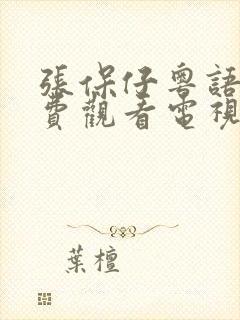 張保仔粵語
費觀看電視
葉檀